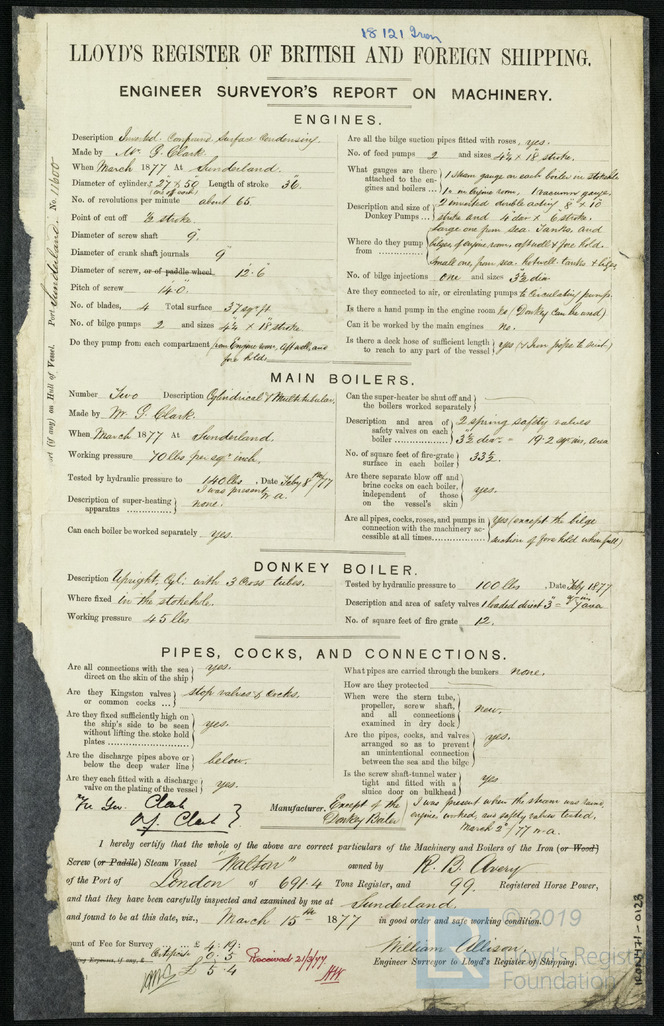 18121 Iron
LLOYD'S REGISTER OF BRITISH AND FOREIGN SHIPPING.
ENGINEER SURVEYOR'S REPORT ON MACHINERY.
Port Sunderland. No. 11600
(if any) on Hull of Vessel.
ENGINES.
Description Inverted Compound Surface Condensing
Made by Mr. G. Clark.
When March 1877 At Sunderland.
Diameter of cylinders 27 & 50 Length of stroke 36.
(one of each)
No. of revolutions per minute about 65.
Point of cut off ½ stroke
Diameter of screw shaft 9".
Diameter of crank shaft journals 9"
Diameter of screw, or of paddle wheel, 12.6
Pitch of screw 14.0.
No. of blades, 4 Total surface 37 sq. ft.
No. of bilge pumps 2 and sizes 4¼ x 18" stroke.
Do they pump from each compartment from Engine room, aft well, and
fore hold.
Are all the bilge suction pipes fitted with roses, yes.
No. of feed pumps 2 and sizes 4¼ x 18" stroke.
What gauges are there attached to the engines and boilers ... 1 Steam gauge on each boiler in stokehole
1 in engine room, 1 vacuum gauge.
Description and size of Donkey Pumps ... 2 inverted double acting 8 x 10
stroke and 4" diar x 6 stroke.
Where do they pump from ... Large one from sea. Tanks, and
bilges, of engine room, aft well & fore hold.
Small one, from sea hotwell tanks & bilges,
No. of bilge injections one and sizes 3½ dia
Are they connected to air, or circulating pumps to Circulating pump.
Is there a hand pump in the engine room no (Donkey can be used)
Can it be worked by the main engines no.
Is there a deck hose of sufficient length to reach to any part of the vessel yes
MAIN BOILERS.
Number Two Description Cylindrical & Multitubular.
Made by Mr. G. Clark.
When March 1877 At Sunderland.
Working pressure 70 lbs per sq. inch,
Tested by hydraulic pressure to 140 lbs, Date Feby 8th/77
I was present W.A.
Description of super-heating apparatus none.
Can each boiler be worked separately yes.
Can the super-heater be shut off and the boilers worked separately
Description and area of safety valves on each boiler 2 spring safety valves
3½ diar. = 19.2 sq. ins, area
No. of square feet of fire-grate surface in each boiler 33½.
Are there separate blow off and brine cocks on each boiler, independent of those on the vessel's skin yes.
Are all pipes, cocks, roses, and pumps in connection with the machinery accessible at all times yes (except the bilge
suction of fore hold when full)
DONKEY BOILER.
Description Upright, Cyl: with 3 Cross tubes.
Where fixed in the stokehole.
Working pressure 45 lbs
Tested by hydraulic pressure to 100 lbs, Date Feby 1877
Description and area of safety valves 1 loaded direct 3" = 7 area
No. of square feet of fire grate 12.
PIPES, COCKS, AND CONNECTIONS.
Are all connections with the sea direct on the skin of the ship yes.
Are they Kingston valves or common cocks ... stop valves & Cocks.
Are they fixed sufficiently high on the ship's side to be seen without lifting the stoke hold plates yes.
Are the discharge pipes above or below the deep water line below.
Are they each fitted with a discharge valve on the plating of the vessel yes.
What pipes are carried through the bunkers none.
How are they protected
When were the stern tube, propeller, screw shaft, and all connections examined in dry dock new.
Are the pipes, cocks, and valves arranged so as to prevent an unintentional connection between the sea and the bilge yes.
Is the screw shaft-tunnel water tight and fitted with a sluice door on bulkhead yes
For Geo. Clark
A.J. Clark Manufacturer. Except of the
Donkey Boiler
I was present when the steam was raised,
engines worked, and safety valves tested.
March 2nd/77 W.A.
I hereby certify that the whole of the above are correct particulars of the Machinery and Boilers of the Iron (or Wood)
Screw (or Paddle) Steam Vessel "Walton" owned by R. B. Avery
of the Port of London of 691.4 Tons Register, and 99. Registered Horse Power,
and that they have been carefully inspected and examined by me at Sunderland.
and found to be at this date, viz., March 15th 1877 in good order and safe working condition.
William Allison.
Engineer Surveyor to Lloyd's Register of Shipping.
Amount of Fee for Survey ... £ 4.19:
Certificate 0.5
£ 5.4
Received 21/3/77
© 2019
Lloyd's Register
Foundation
IRON1471-0123